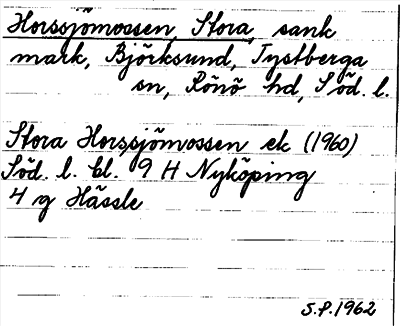 Horssjömossen, Stora, sank
mark, Björksund, Tystberga
sn, Rönö hd, Söd. l.
Stora Horssjömossen ek (1960)
Söd. l. bl. 9 H Nyköping
4 g Hässle
S.P. 1962